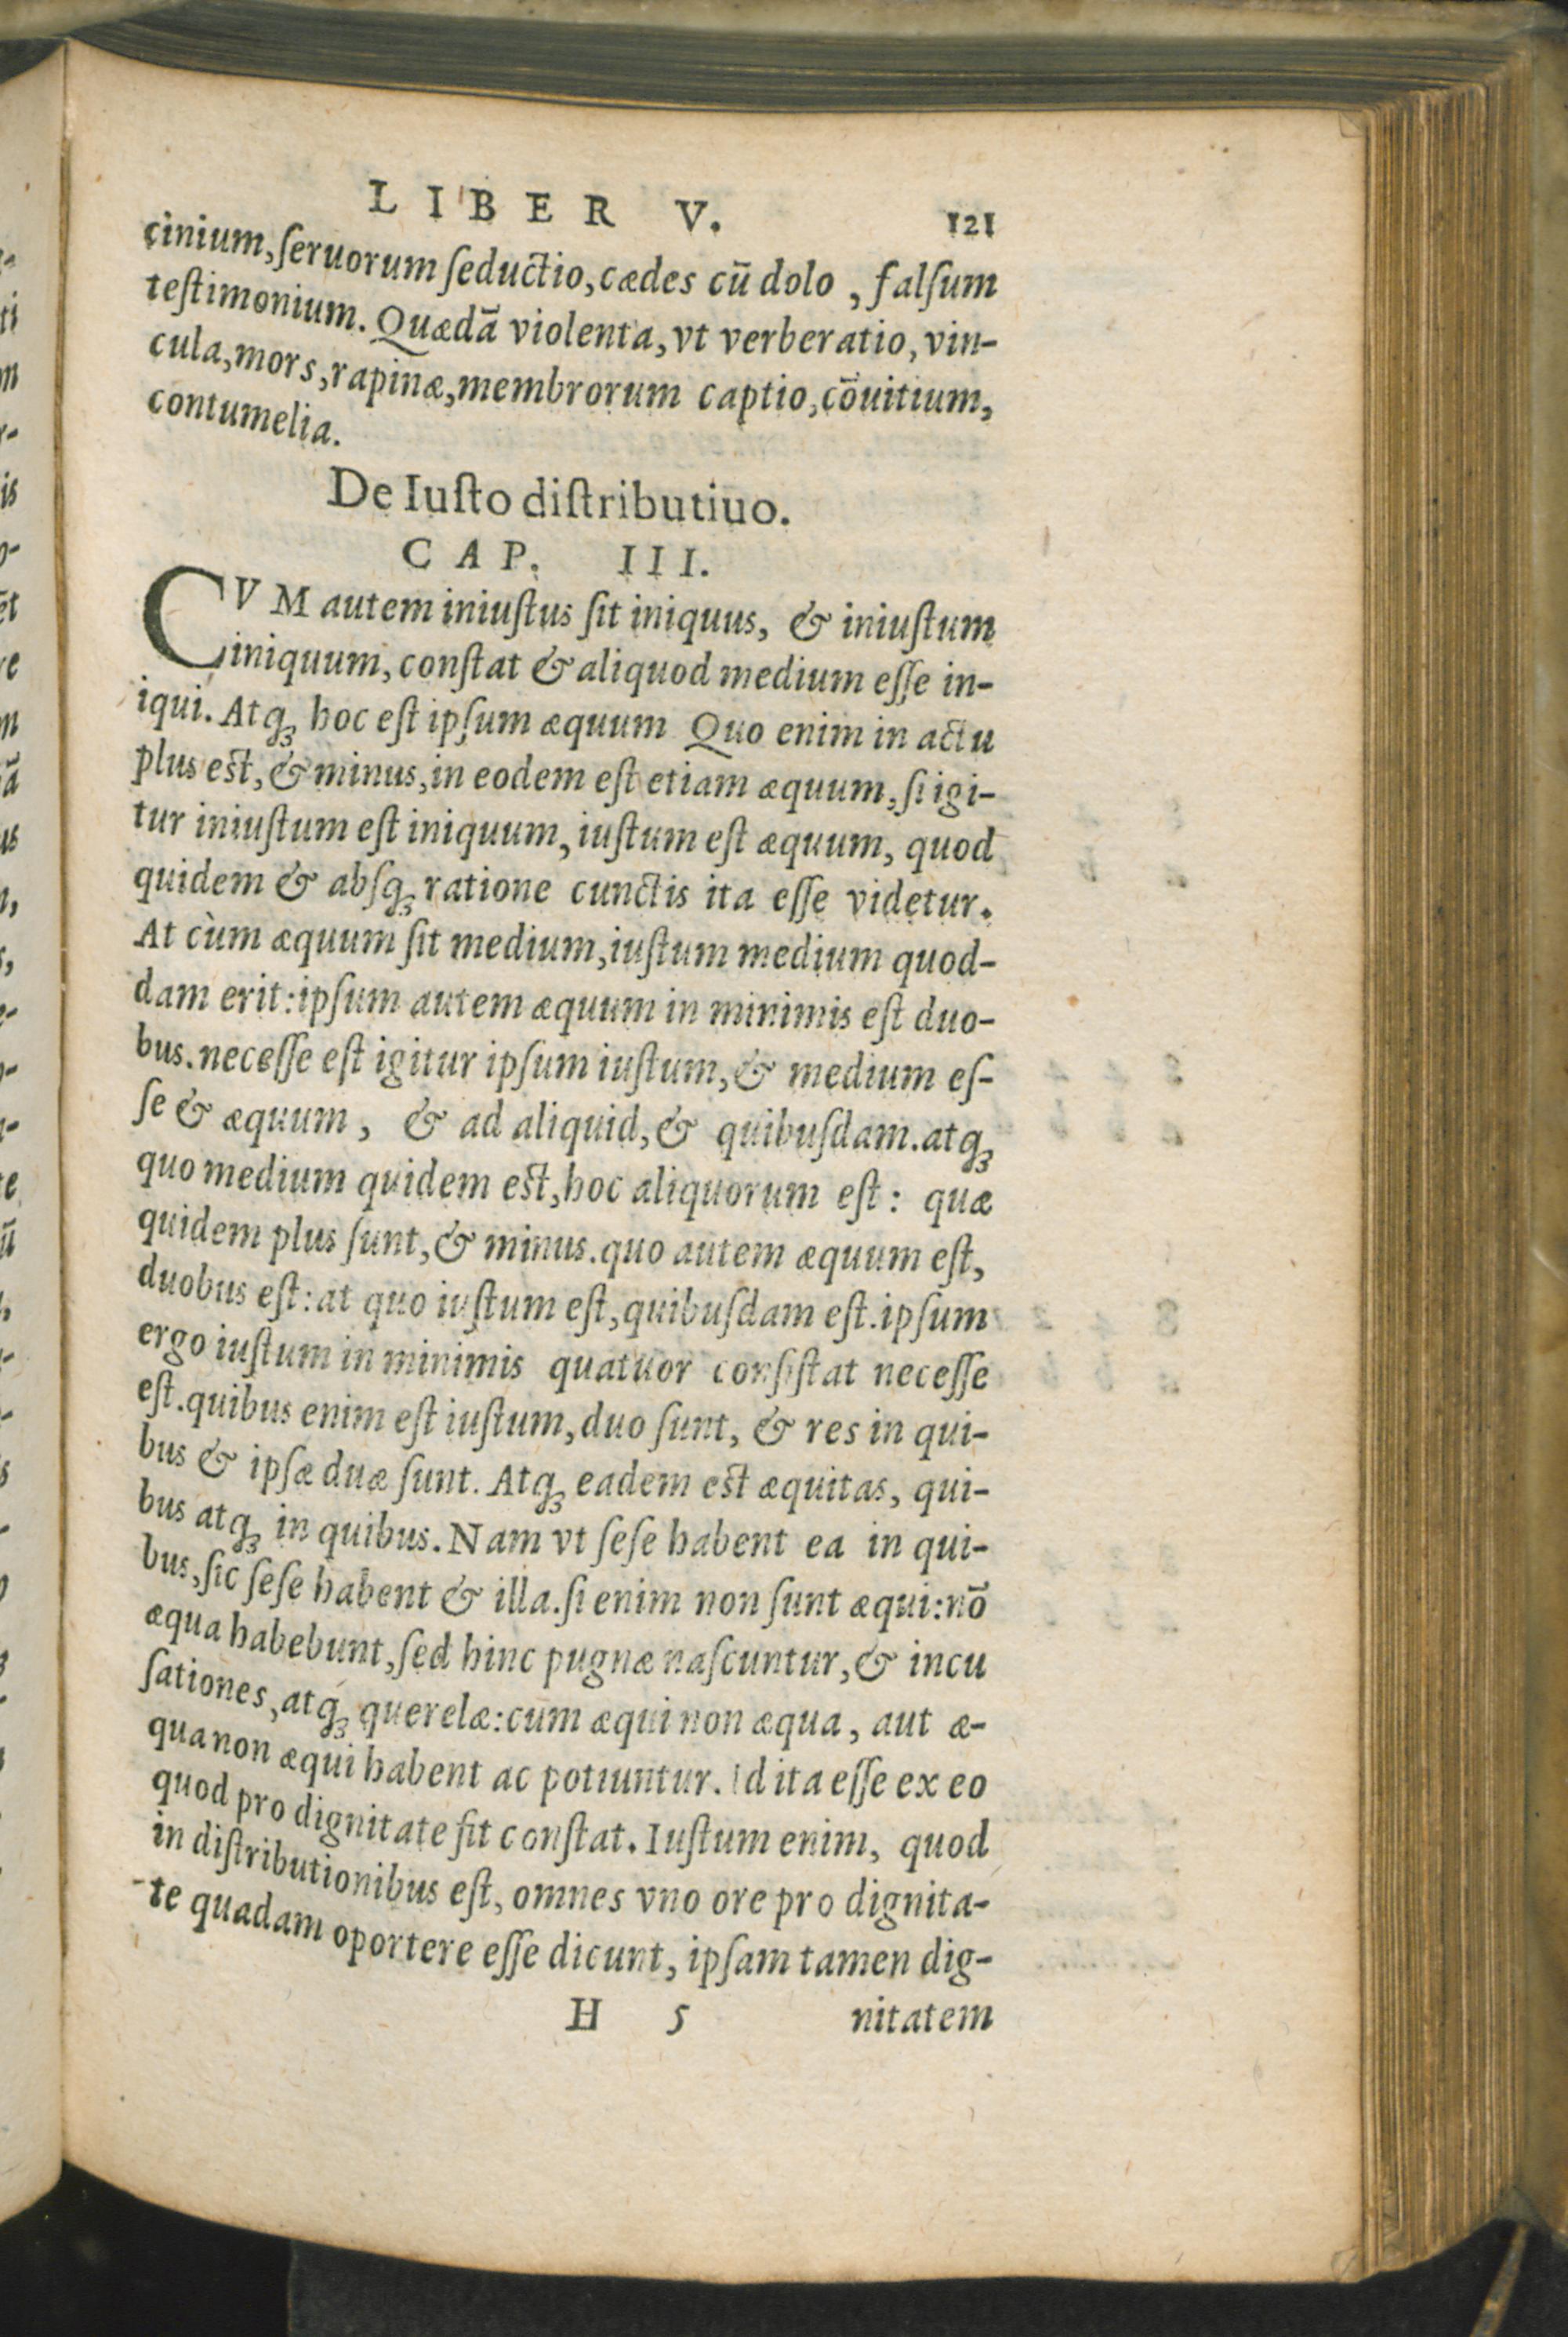 LIBER V. 121
cinium, ſeruorum ſeductio, cædes cū dolo , falſum
teſtimonium. Quædā violenta, vt verberatio, vin-
cula, mors, rapinæ, membrorum captio, cōuitium,
contumelia.
De Iuſto diſtributiuo.
CAP. III.
CVM autem iniuſtus ſit iniquus, & iniuſtum
iniquum, conſtat & aliquod medium eſſe in-
iqui. Atqꝫ hoc eſt ipſum æquum Quo enim in actu
plus est, & minus, in eodem eſt etiam æquum, ſi igi-
tur iniuſtum eſt iniquum, iuſtum eſt æquum, quod
quidem & abſqꝫ ratione cunctis ita eſſe videtur.
At cùm æquum ſit medium, iuſtum medium quod-
dam erit: ipſum autem æquum in minimis eſt duo-
bus. neceſſe eſt igitur ipſum iuſtum, & medium eſ-
ſe & æquum, & ad aliquid, & quibuſdam. atqꝫ
quo medium quidem est, hoc aliquorum eſt: quæ
quidem plus ſunt, & minus. quo autem æquum eſt,
duobus eſt: at quo iuſtum eſt, quibuſdam eſt. ipſum
ergo iuſtum in minimis quatuor conſiſtat neceſſe
eſt. quibus enim eſt iuſtum, duo ſunt, & res in qui-
bus & ipſæ duæ ſunt. Atqꝫ eadem est æquitas, qui-
bus atqꝫ in quibus. Nam vt ſeſe habent ea in qui-
bus, ſic ſeſe habent & illa. ſi enim non ſunt æqui: nō
æqua habebunt, ſed hinc pugnæ naſcuntur, & incu
ſationes, atqꝫ querelæ: cum æqui non æqua, aut æ-
qua non æqui habent ac potiuntur. Id ita eſſe ex eo
quod pro dignitate ſit conſtat. Iuſtum enim, quod
in diſtributionibus eſt, omnes vno ore pro dignita-
te quadam oportere eſſe dicunt, ipſam tamen dig-
H 5 nitatem